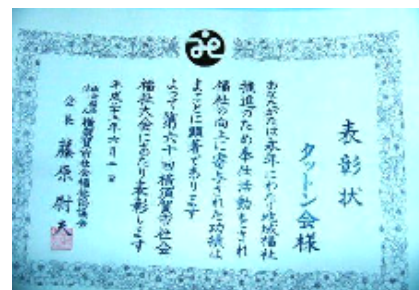 表彰状
タットン会様
あなたがたは永年にわたり地域福祉
推進のため奉仕活動をされ
福祉の向上に寄与された功績は
まことに顕著であります
よって第 回横須賀市社会
福祉大会にあたり表彰します
平成 年六月一 日
横須賀市社会福祉協議会
会長 藤原